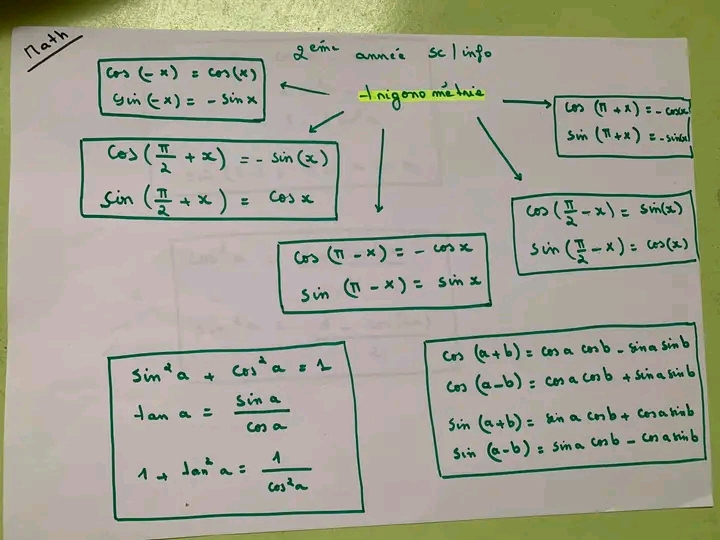 Math
2ème année sc/info
trigonométrie
cos (-x) = cos(x)
sin (-x) = - sin x
cos (π + x) = - cos(x)
sin (π + x) = - sin(x)
cos (π/2 + x) = - sin (x)
sin (π/2 + x) = cos x
cos (π/2 - x) = sin(x)
sin (π/2 - x) = cos(x)
cos (π - x) = - cos x
sin (π - x) = sin x
sin² a + cos² a = 1
tan a = sin a / cos a
1 + tan² a = 1 / cos² a
cos (a+b) = cos a cos b - sin a sin b
cos (a-b) = cos a cos b + sin a sin b
sin (a+b) = sin a cos b + cos a sin b
sin (a-b) = sin a cos b - cos a sin b